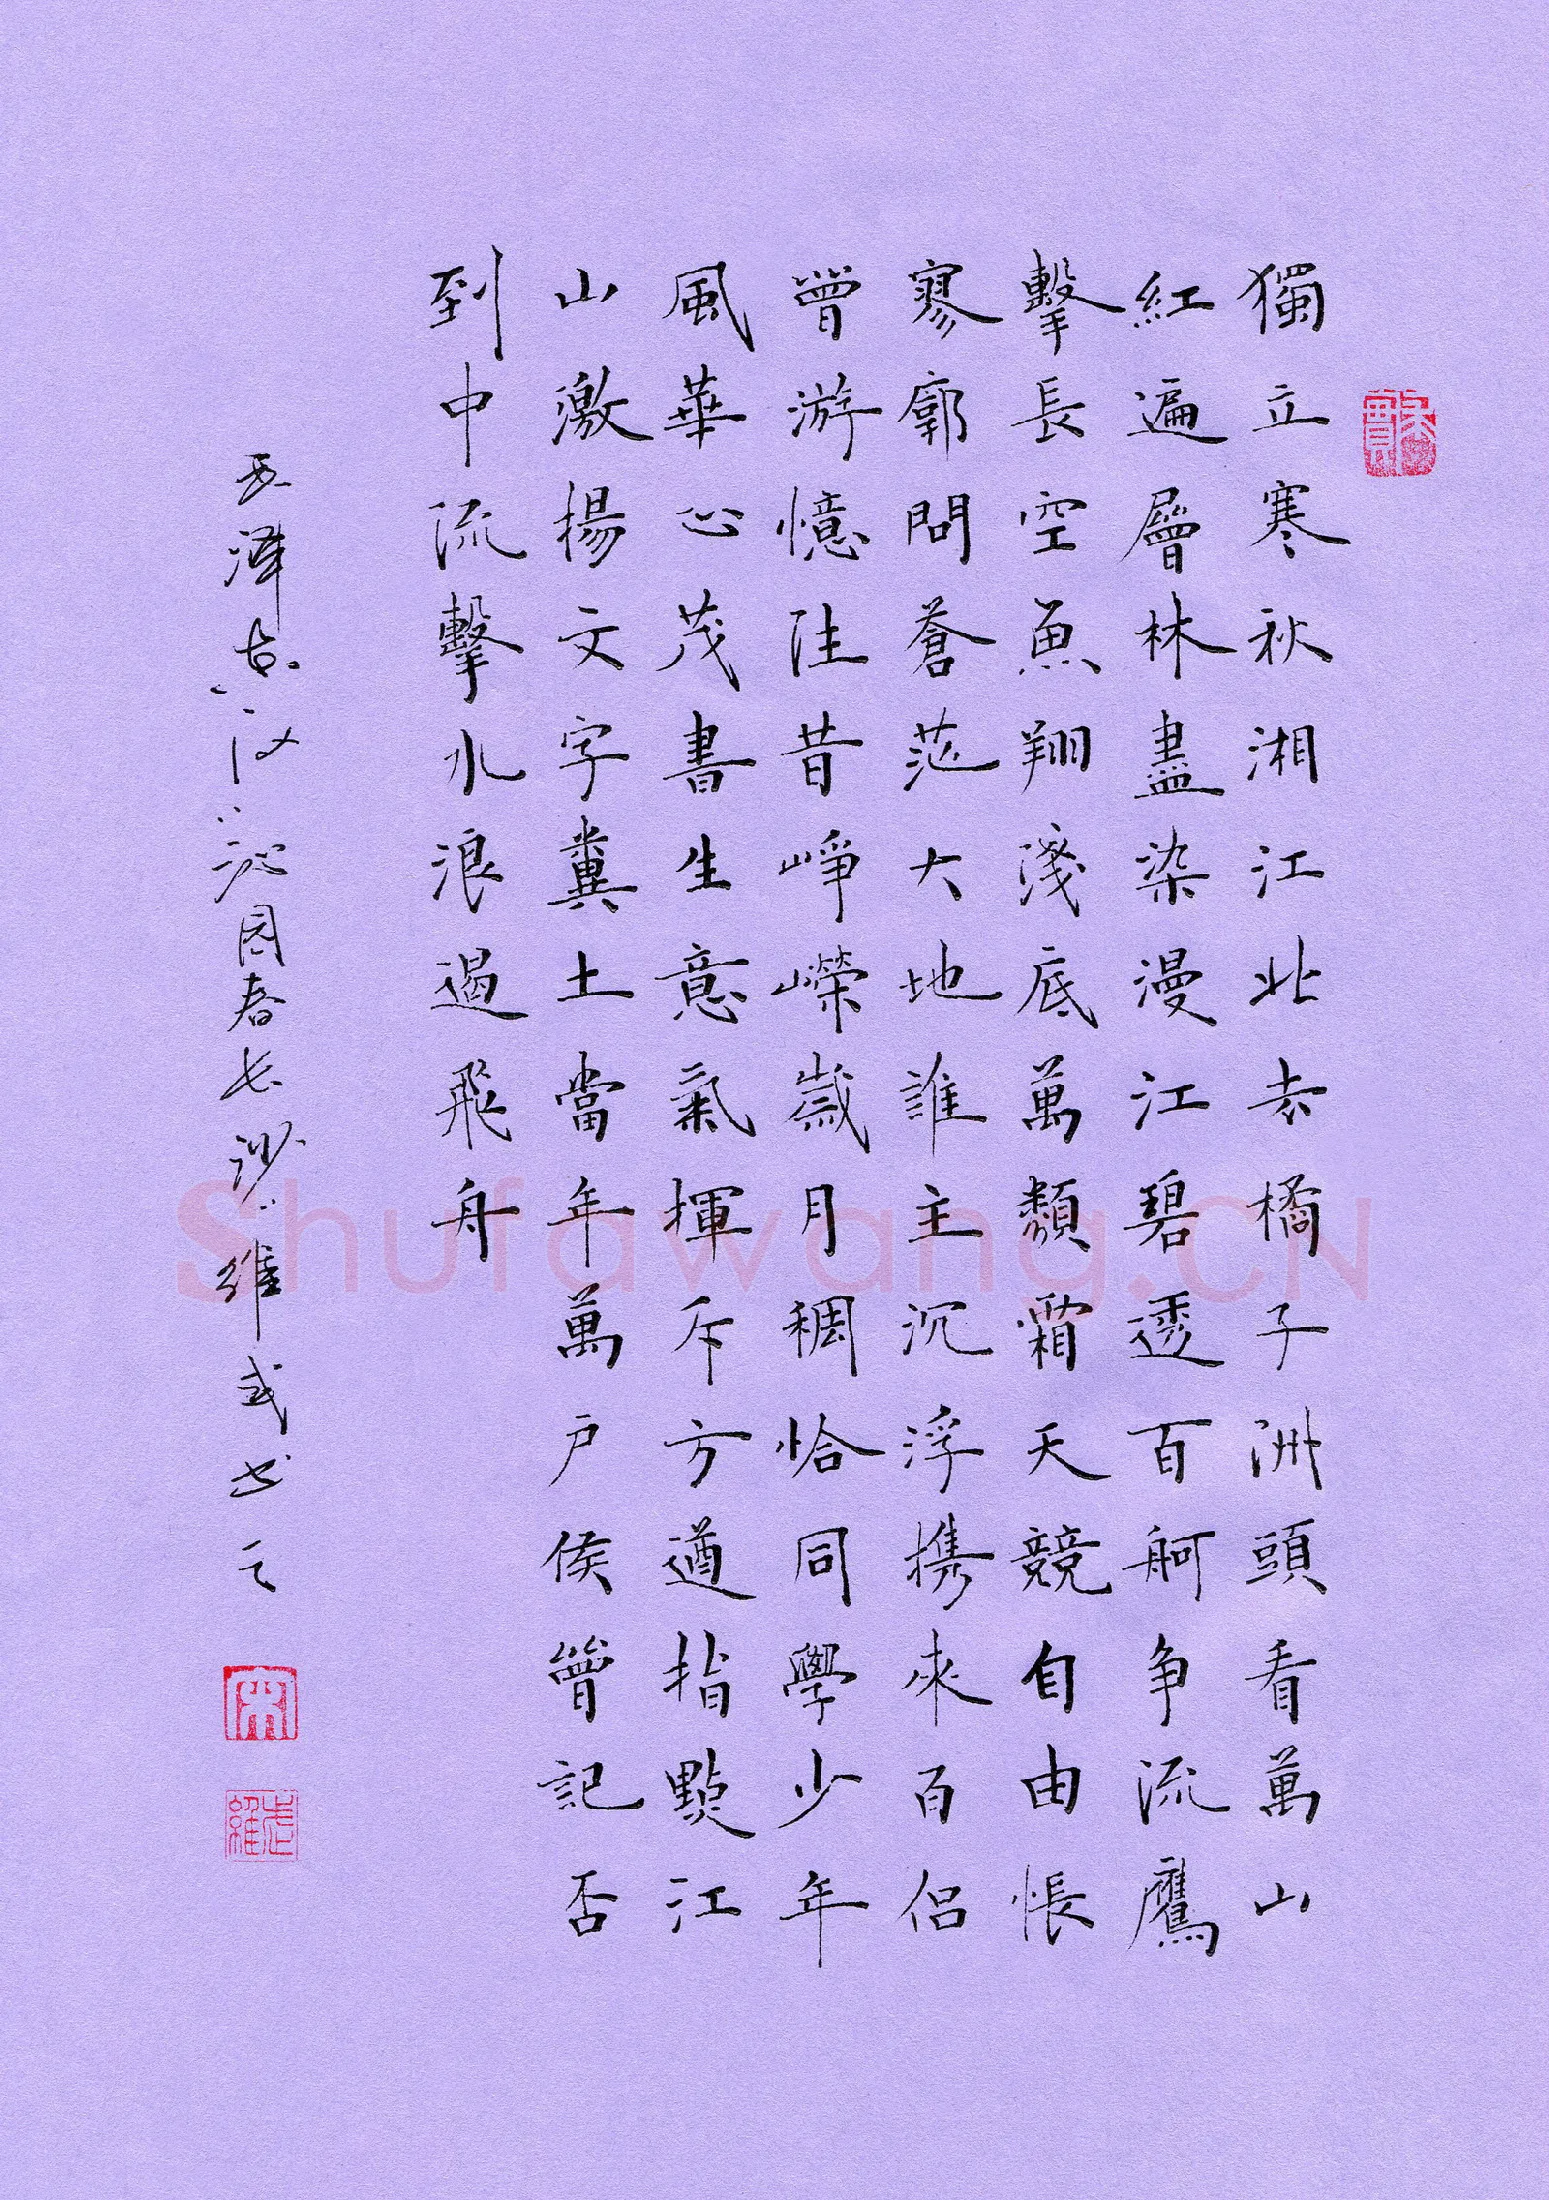 獨立寒秋湘江北去橘子洲頭看萬山
紅遍層林盡染漫江碧透百舸争流鷹
擊長空魚翔淺底萬類霜天競自由悵
寥廓問蒼茫大地誰主沉浮携來百侣
曾游憶往昔崢嶸歲月稠恰同學少年
風華正茂書生意氣揮斥方遒指點江
山激揚文字糞土當年萬户侯曾記否
到中流擊水浪遏飛舟
澤东词沁园春长沙維武书之
宋
維武
Shufawang.CN